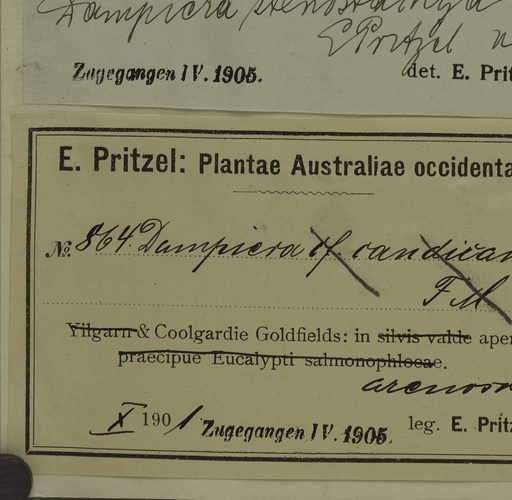 Dampiera stenostachya
E Pritzel n
Zugegangen IV. 1905.
det. E. Prit
E. Pritzel: Plantae Australiae occidenta
№ 864. Dampiera cf. candican
F M
Yilgarn & Coolgardie Goldfields: in silvis valde aper
praecipue Eucalypti salmonophloeae.
arenosa
X 1901
Zugegangen IV. 1905.
leg. E. Pritz